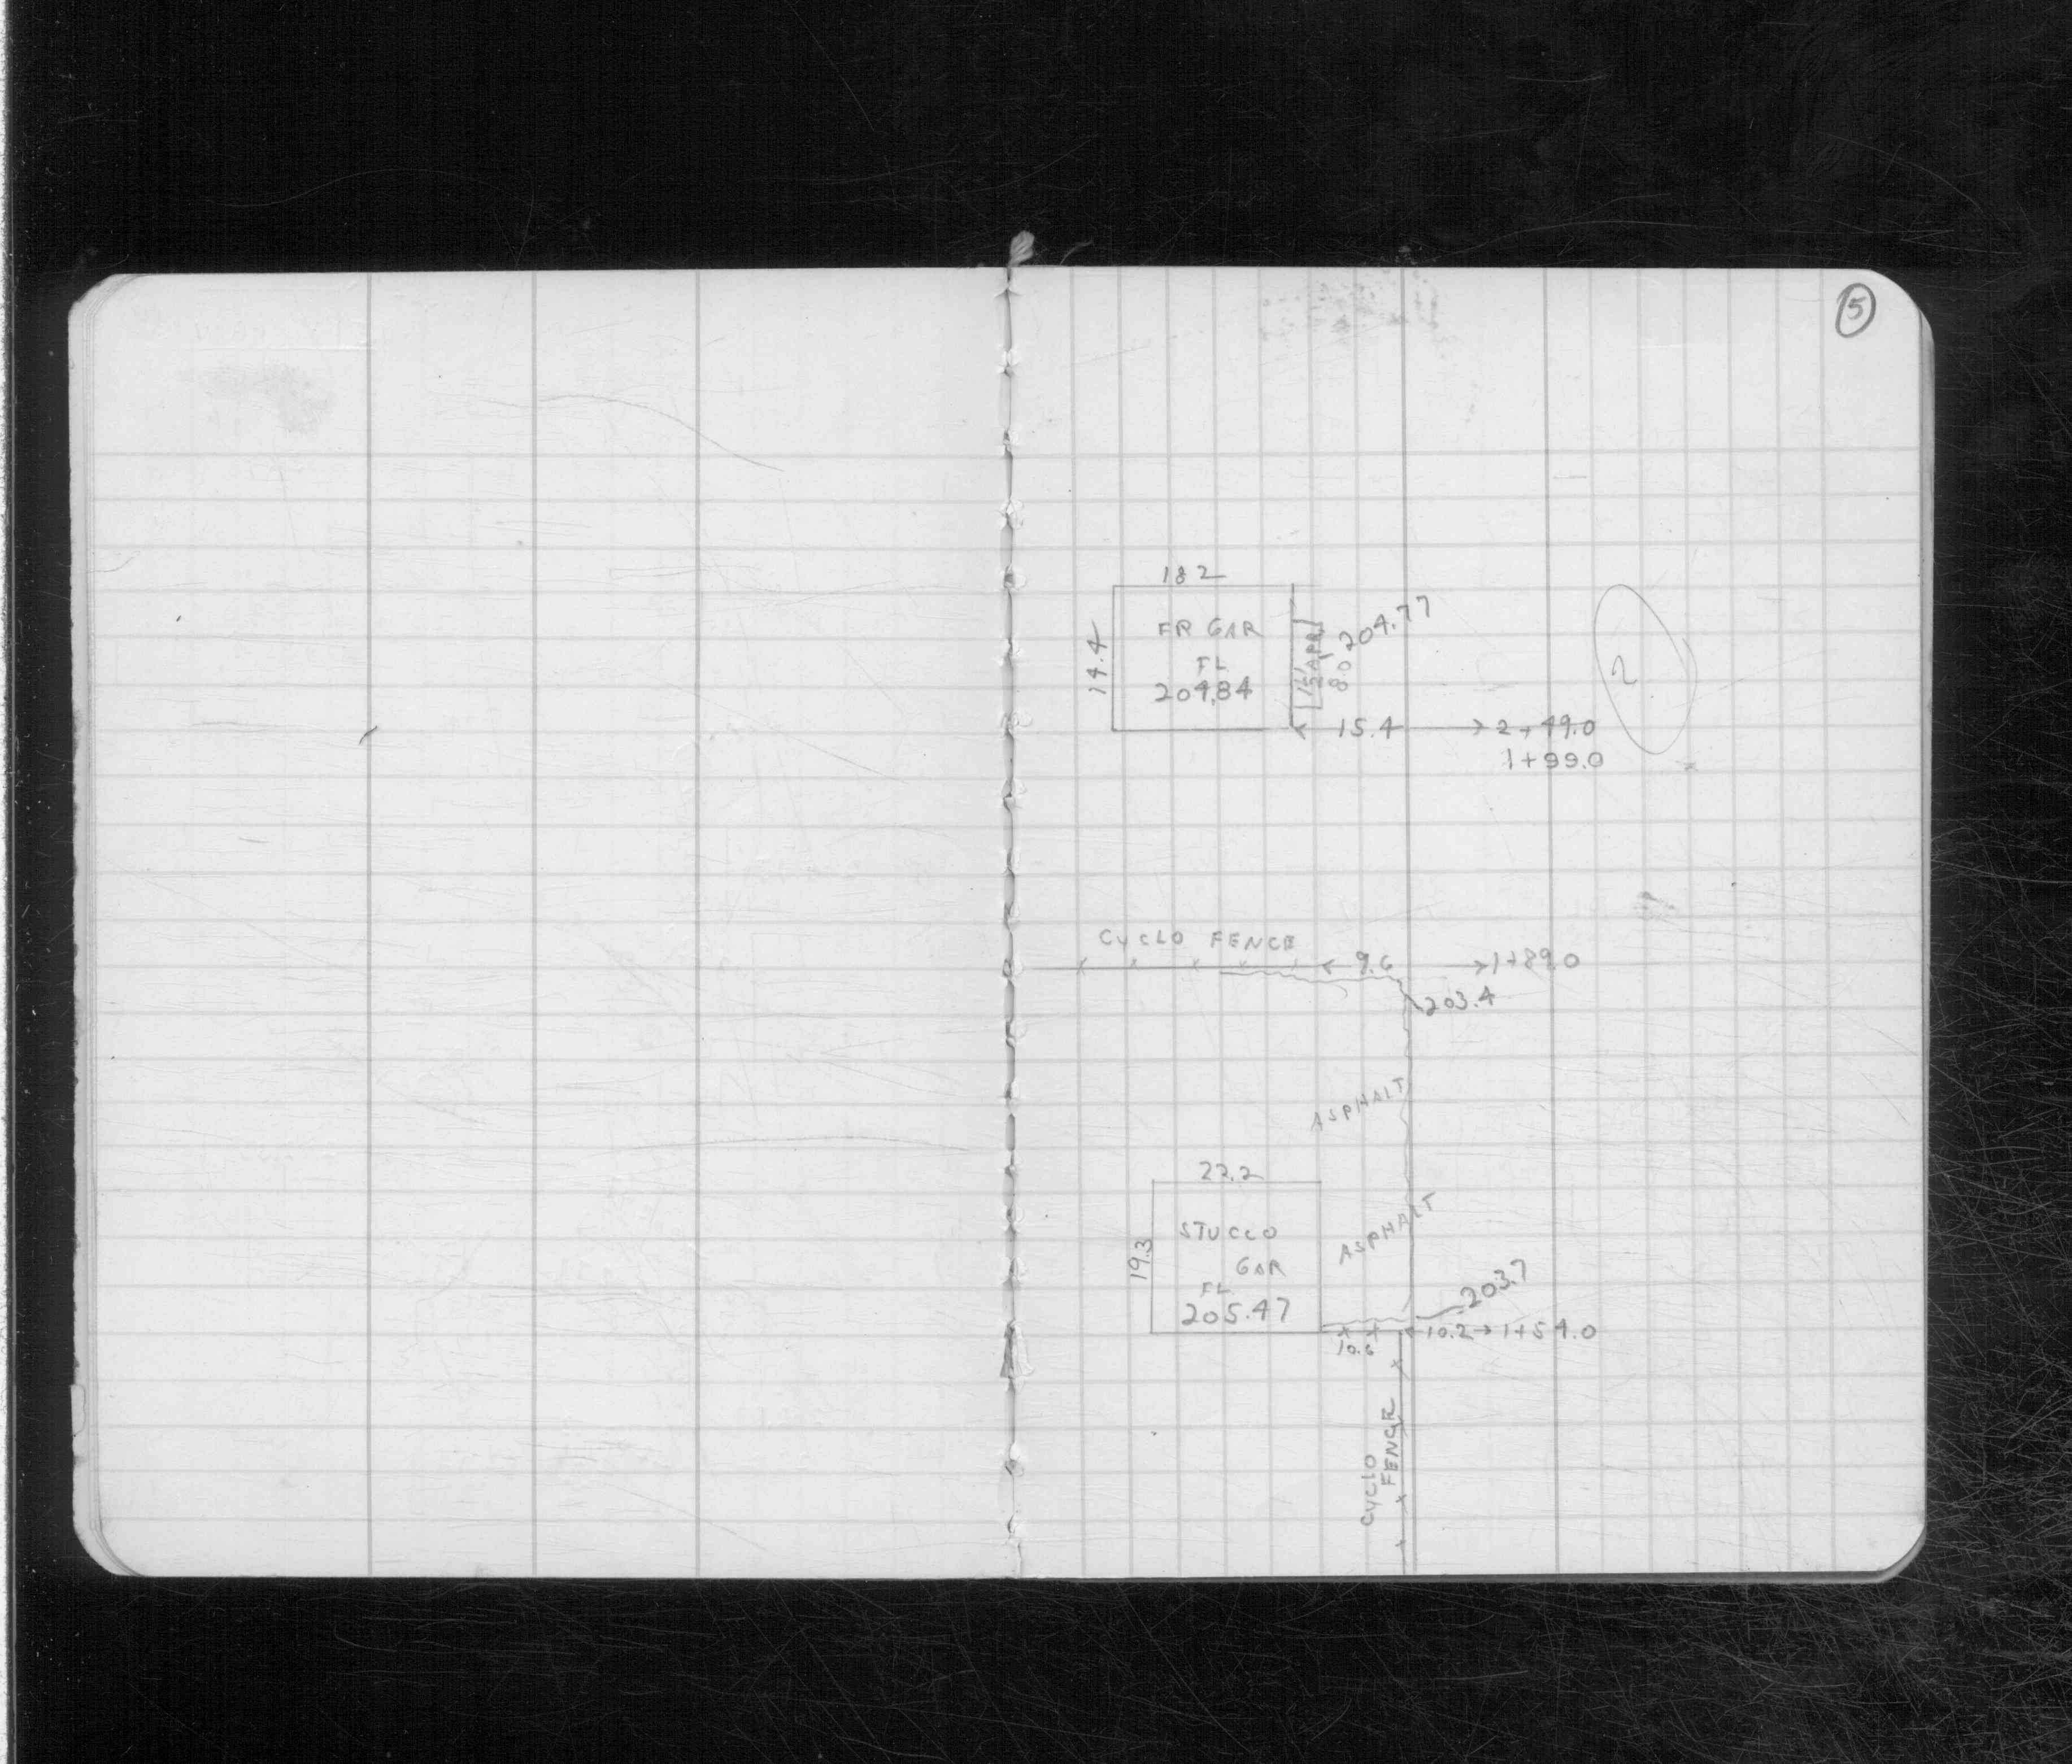 5
182
FR GAR
14.4
FL
204.84
8.0
204.77
2
15.4
2+49.0
1+99.0
CYCLO FENCE
9.6
1+89.0
203.4
ASPHALT
22.2
STUCCO
GAR
19.3
FL
205.47
ASPHALT
203.7
10.6
10.2
1+54.0
CYCLO
FENCE